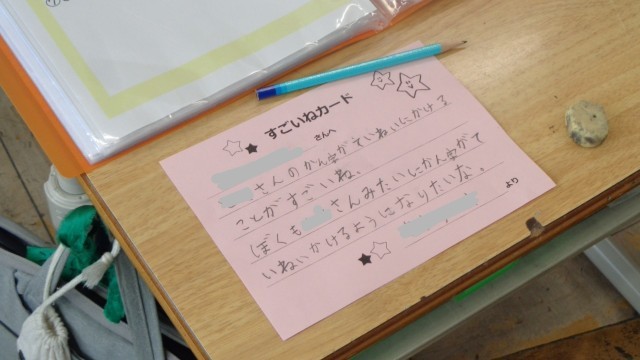 すごいねカード
さんへ
さんのかん字がていねいにかける
ことがすごいね。
ぼくもさんみたいにかん字がて
いねいかけるようになりたいな。
より